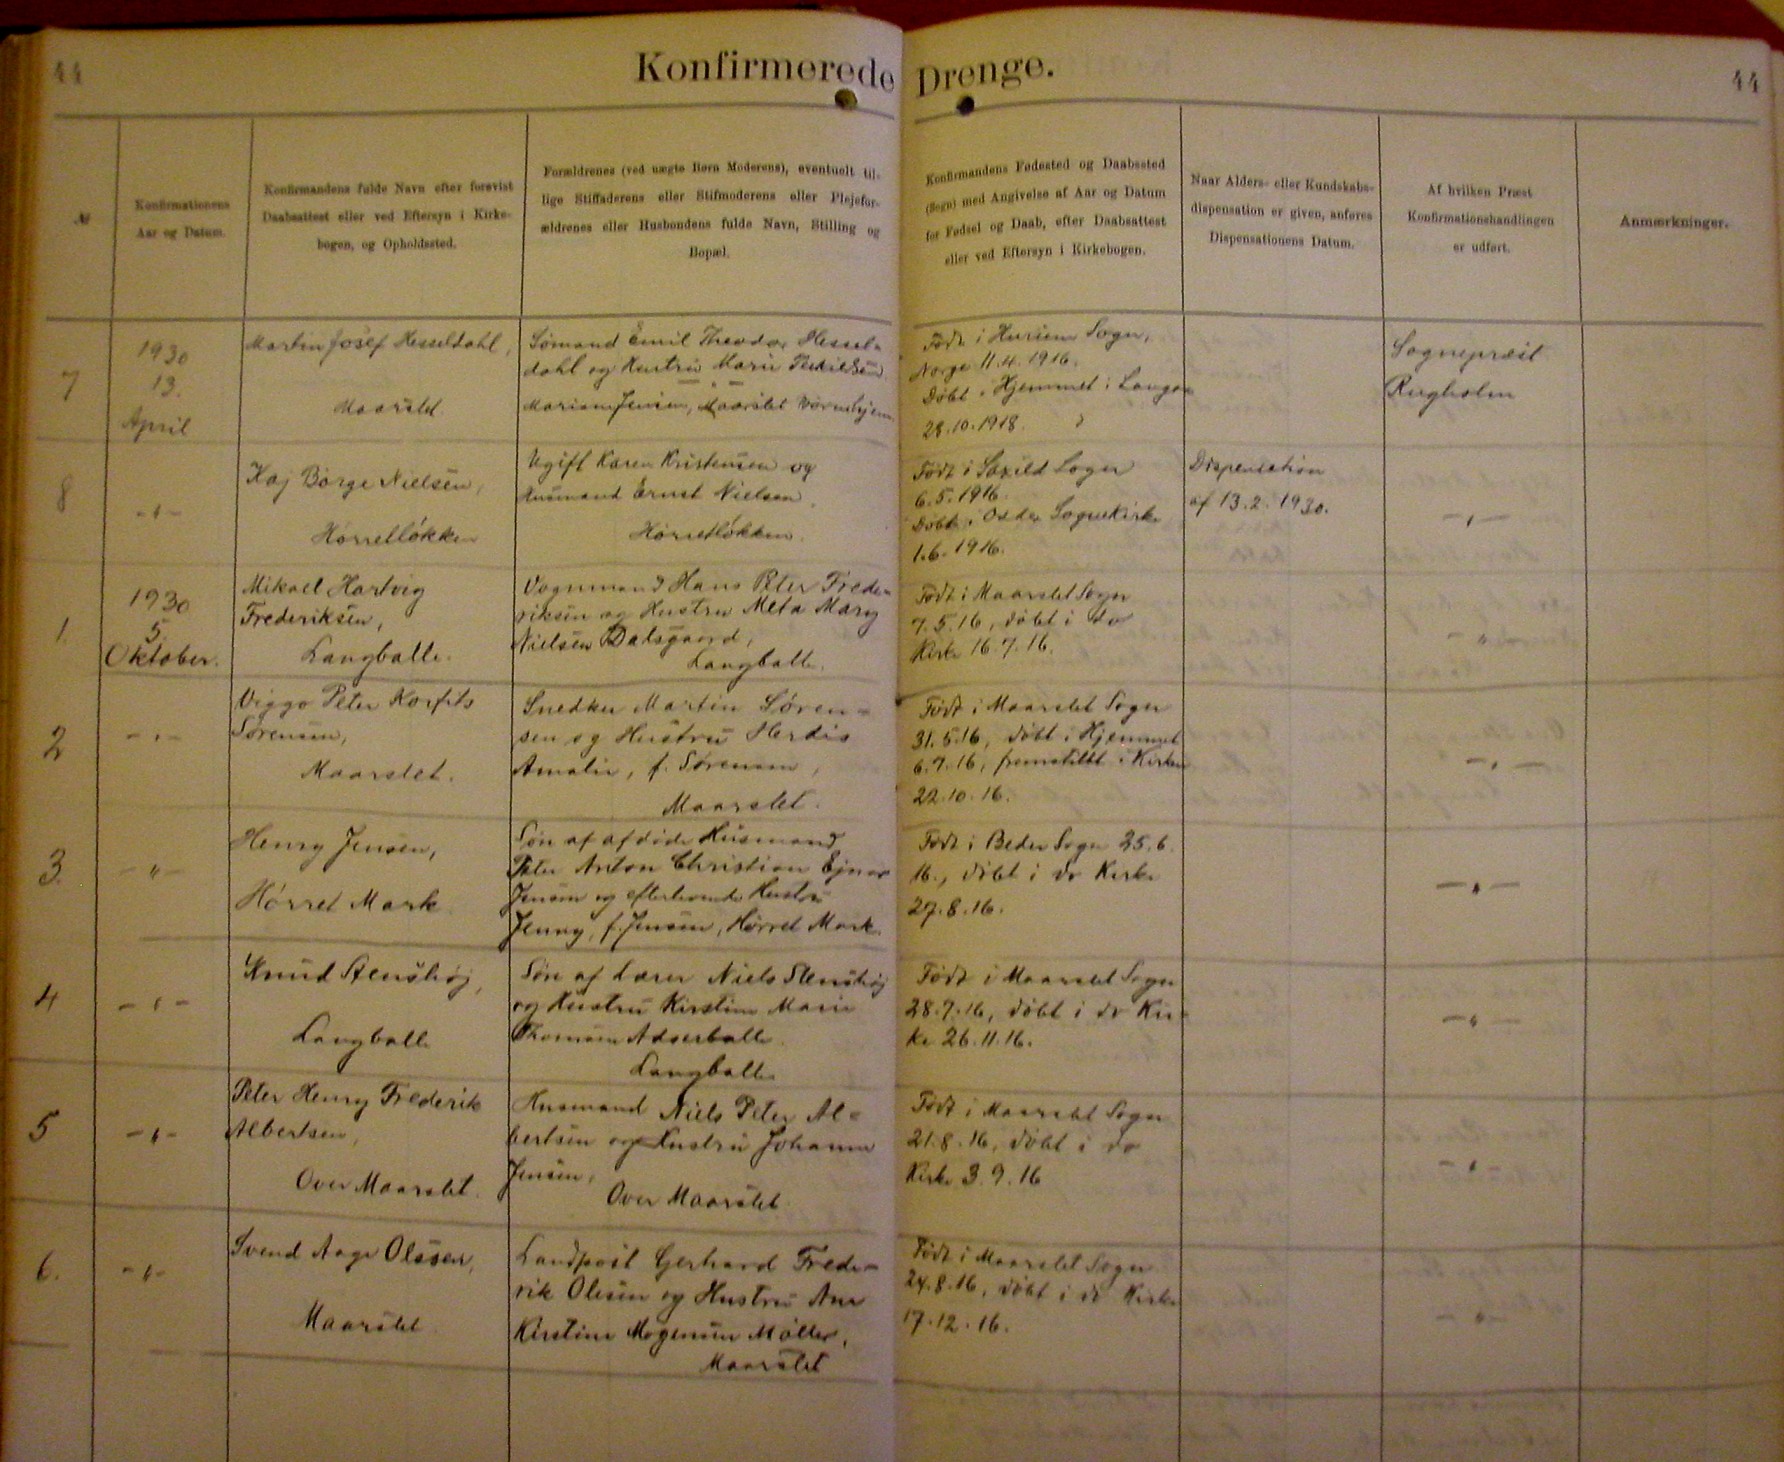 44
Konfirmerede Drenge.
44
№
Konfirmationens
Aar og Datum.
Konfirmandens fulde Navn efter forevist
Daabsattest eller ved Eftersyn i Kirke-
bogen, og Opholdssted.
Forældrenes (ved uægte Børn Moderens), eventuelt til-
lige Stiffaderens eller Stifmoderens eller Plejefor-
ældrenes eller Husbondens fulde Navn, Stilling og
Bopæl.
Konfirmandens Fødested og Daabssted
(Sogn) med Angivelse af Aar og Datum
for Fødsel og Daab, efter Daabsattest
eller ved Eftersyn i Kirkebogen.
Naar Alders- eller Kundskabs-
dispensation er given, anføres
Dispensationens Datum.
Af hvilken Præst
Konfirmationshandlingen
er udført.
Anmærkninger.
7
1930
13.
April
Martin Josef Hesseldahl,
Maarslet
Sømand Emil Theodor Hessel-
dahl og Hustru Marie
Jensen, Maarslet Børnehjem
Født i Sogn,
Norge 11.4.1916.
Døbt i Hjemmet i
28.10.1918.
Sognepræst
Rugholm
8
-"-
Kaj Børge Nielsen,
Hørretløkken
Ugift Karen Kristensen og
Husmand Ernst Nielsen.
Hørretløkken.
Født i Saxild Sogn
6.5.1916.
Døbt i Odder Sognekirke
1.6.1916.
Dispensation
af 13.2.1930.
-"-
1
1930
5.
Oktober.
Mikael Hartvig
Frederiksen,
Langballe.
Vognmand Hans Peter Frede-
riksen og Hustru Meta Mary
Nielsen Dalsgaard,
Langballe.
Født i Maarslet Sogn
7.5.16, døbt i do
Kirke 16.7.16.
-"-
2
-"-
Viggo Peter Korfits
Sørensen,
Maarslet.
Snedker Martin Søren-
sen og Hustru Herdis
Amalie, f. Sørensen,
Maarslet.
Født i Maarslet Sogn
31.5.16, døbt i Hjemmet
6.7.16, fremstillet i Kirken
22.10.16.
-"-
3.
-"-
Henry Jensen,
Hørret Mark
Søn af afdøde Husmand
Peter Anton Christian Ejner
Jensen og efterlevende Hustru
Jenny, f. Jensen, Hørret Mark.
Født i Beder Sogn 25.6.
16., døbt i do Kirke
27.8.16.
-"-
4
-"-
Knud Stenshøj,
Langballe
Søn af Lærer Niels Stenshøj
og Hustru Kirstine Marie
Thomsen Adserballe
Langballe
Født i Maarslet Sogn
28.7.16, døbt i do Kir-
ke 26.11.16.
-"-
5
-"-
Peter Henry Frederik
Albertsen,
Over Maarslet.
Husmand Niels Peter Al-
bertsen og Hustru Johanne
Jensen,
Over Maarslet
Født i Maarslet Sogn
21.8.16, døbt i do
Kirke 3.9.16
-"-
6.
-"-
Svend Aage Olesen,
Maarslet
Landpost Gerhard Frede-
rik Olesen og Hustru Ane
Kirstine Mogensen Møller,
Maarslet
Født i Maarslet Sogn
24.8.16, døbt i do Kirke
17.12.16.
-"-